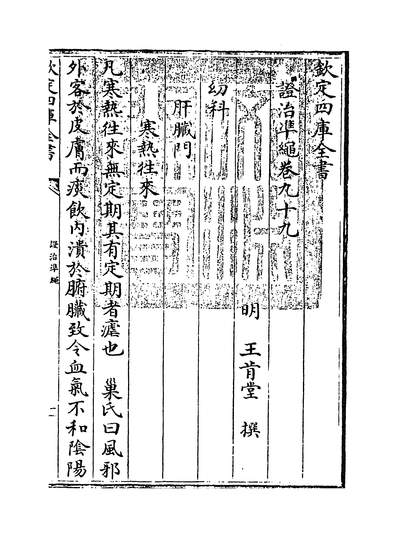 欽定四庫全書
證治準繩卷九十九
明 王肯堂 撰
幼科
肝臟門
寒熱往來
凡寒熱往來無定期其有定期者瘧也 巢氏曰風邪
外客於皮膚而痰飲內漬於腑臟致令血氣不和陰陽
欽定四庫全書
證治準繩